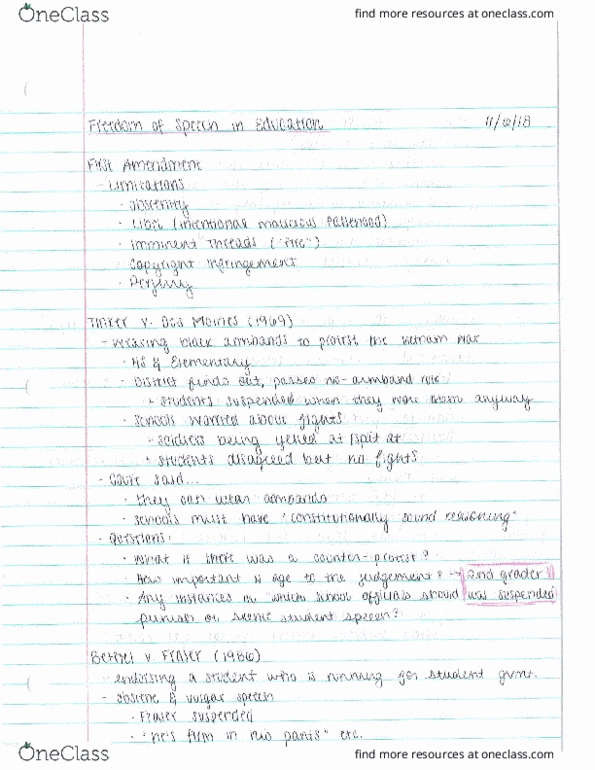 OneClass find more resources at oneclass.com
Freedom of Speech in Education 11/6/18
First Amendment
- Limitations
· obscenity
· Libel (intentional malicious falsehood)
· imminent threads ("fire")
· Copyright infringement
· Perjury
Tinker v. Des Moines (1969)
- Wearing black armbands to protest the Vietnam war
· HS & Elementary
· District finds out, passed no-armband rule
· students suspended when they wore them anyway
· Schools worried about fights
· soldiers being yelled at/spit at
· students disagreed but no fights
· Court said...
· they can wear armbands
· schools must have "constitutionally sound reasoning"
· Questions:
· What if there was a counter-protest?
· How important is age to the judgement? → 2nd grader
· Any instances in which school officials should was suspended
punish or silence student speech?
Bethel v. Fraser (1986)
- endorsing a student who is running for student gvmt.
- obscene & vulgar speech
· Fraser suspended
· "he's firm in his pants" etc.
OneClass find more resources at oneclass.com